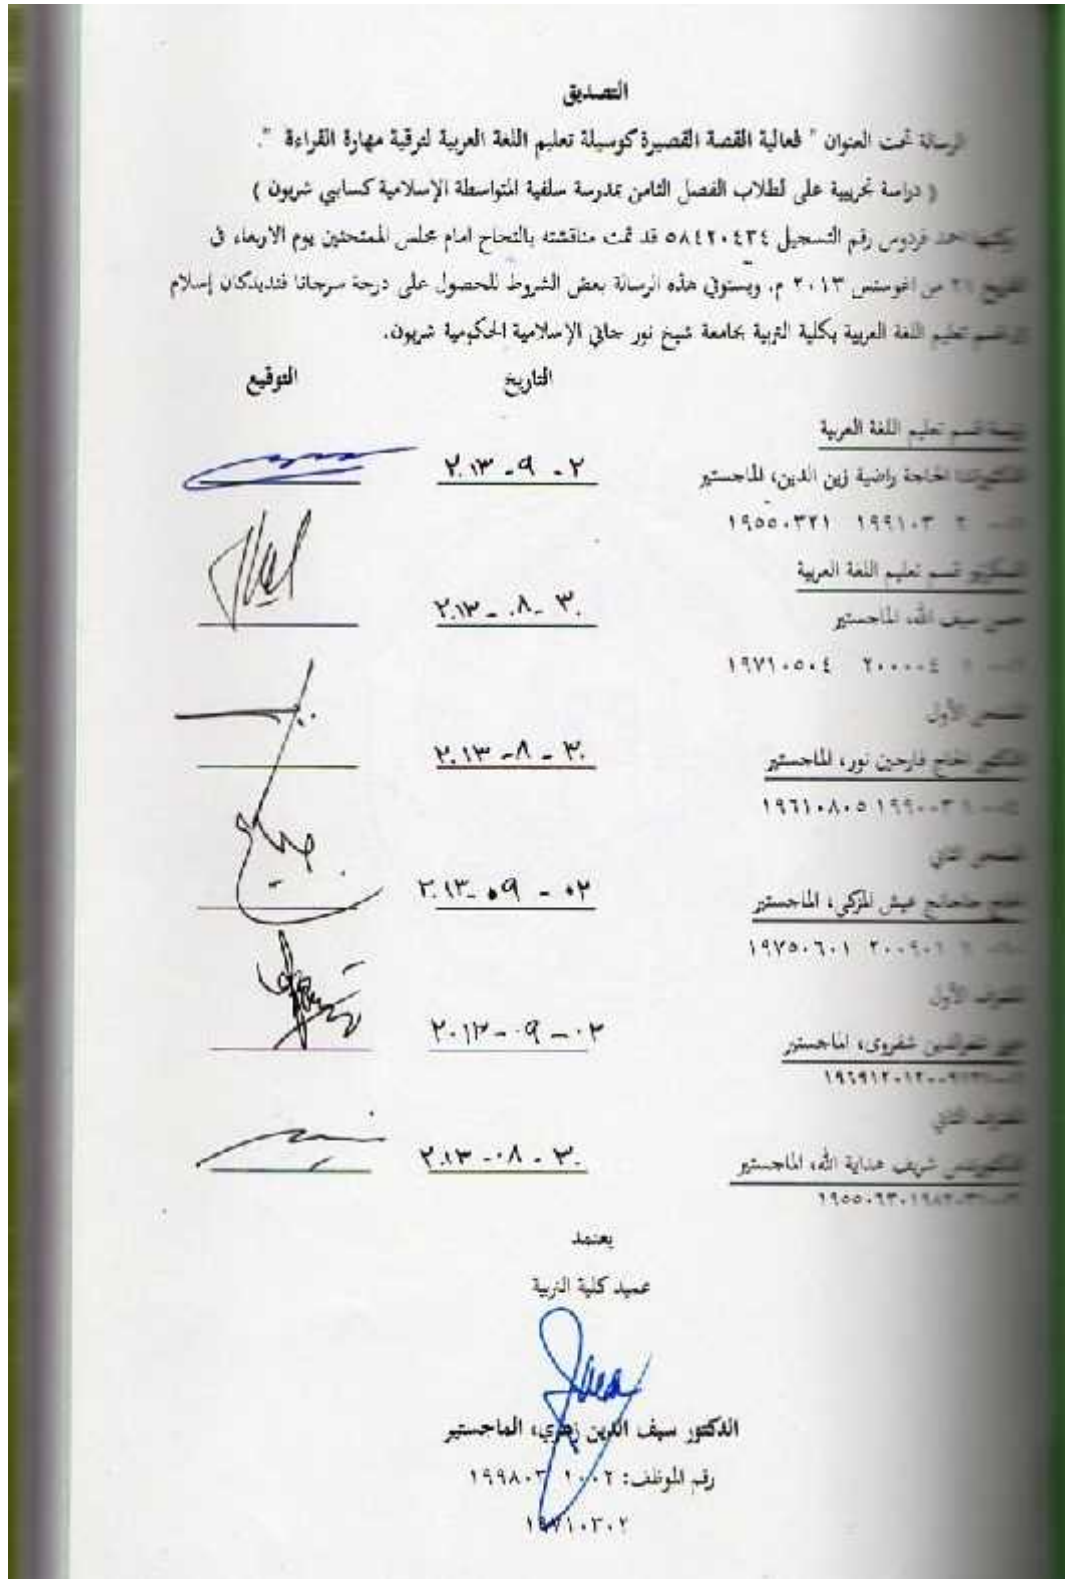 التصديق
الرسالة تحت العنوان " فعالية القصة القصيرة كوسيلة تعليم اللغة العربية لترقية مهارة القراءة ".
( دراسة تجريبية على لطلاب الفصل الثامن بمدرسة سلفية المتواسطة الإسلامية كسابي شربون )
احمد فردوس رقم التسجيل ٥٨٤٢٠٤٣٤ قد تمت مناقشته بالنجاح امام مجلس الممتحنين يوم الاربعاء، فى
من اغوستس ٢٠١٣ م. ويستوفي هذه الرسالة بعض الشروط للحصول على درجة سرجانا فنديدكان إسلام
تعليم اللغة العربية بكلية التربية بجامعة شيخ نور جاتي الإسلامية الحكومية شربون.
التاريخ التوقيع
قسم تعليم اللغة العربية
الحاجة راضية زين الدين، الماجستير ٢ - ٩ - ٢٠١٣
١٩٥٥٠٣٢١ ١٩٩١٠٣
قسم تعليم اللغة العربية
حسن سيف الله، الماجستير ٣٠ - ٠٨ - ٢٠١٣
١٩٧١٠٥٠٤ ٢٠٠٠٠٤
الأول
الحاج فارحين نور، الماجستير ٣٠ - ٨ - ٢٠١٣
١٩٦١٠٨٠٥ ١٩٩٠٠٣
الثاني
عيش المزكي، الماجستير ٠٢ - ٠٩ - ٢٠١٣
١٩٧٥٠٦٠١ ٢٠٠٩٠١
المشرف الأول
شفروى، الماجستير ٠٢ - ٠٩ - ٢٠١٣
المشرف الثاني
شريف هداية الله، الماجستير ٣٠ - ٠٨ - ٢٠١٣
يعتمد
عميد كلية التربية
الدكتور سيف الدين زهري، الماجستير
رقم الموظف: ١٠٠٢ ١٩٩٨٠٣
١٩٧١٠٣٠٢